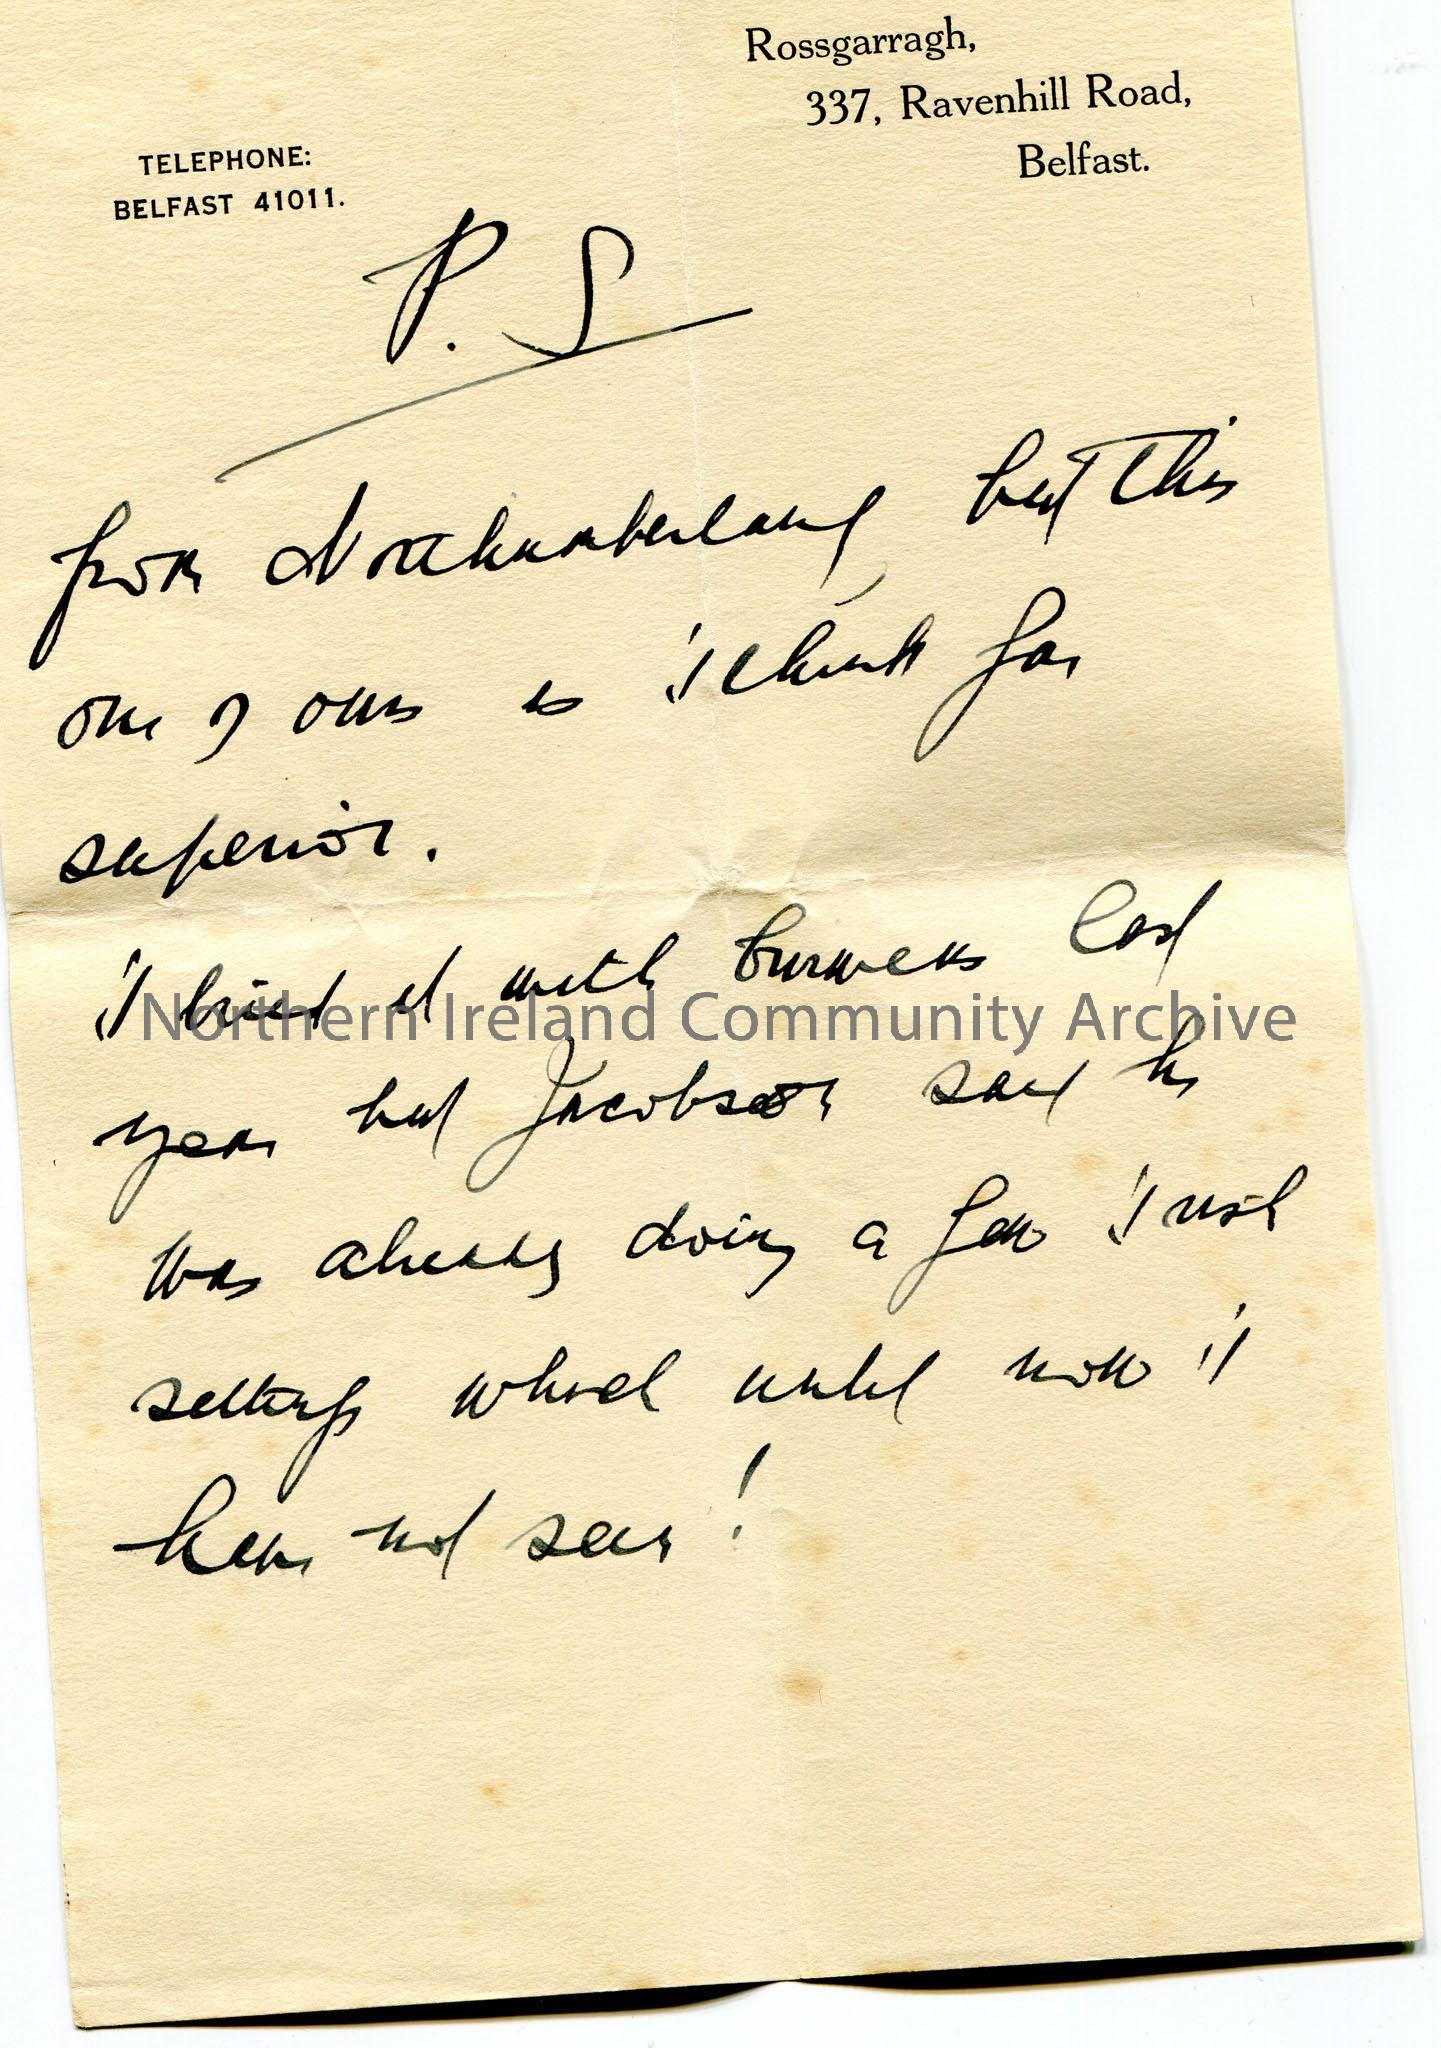 Rossgarragh,
337, Ravenhill Road,
Belfast.
TELEPHONE:
BELFAST 41011.
P. S
from Northumberland but this
one of ours is I think far
superior.
I tried it with last
Northern Ireland Community Archive
year but Jacobson said he
was already doing a few Irish
settings which until now I
have not seen!